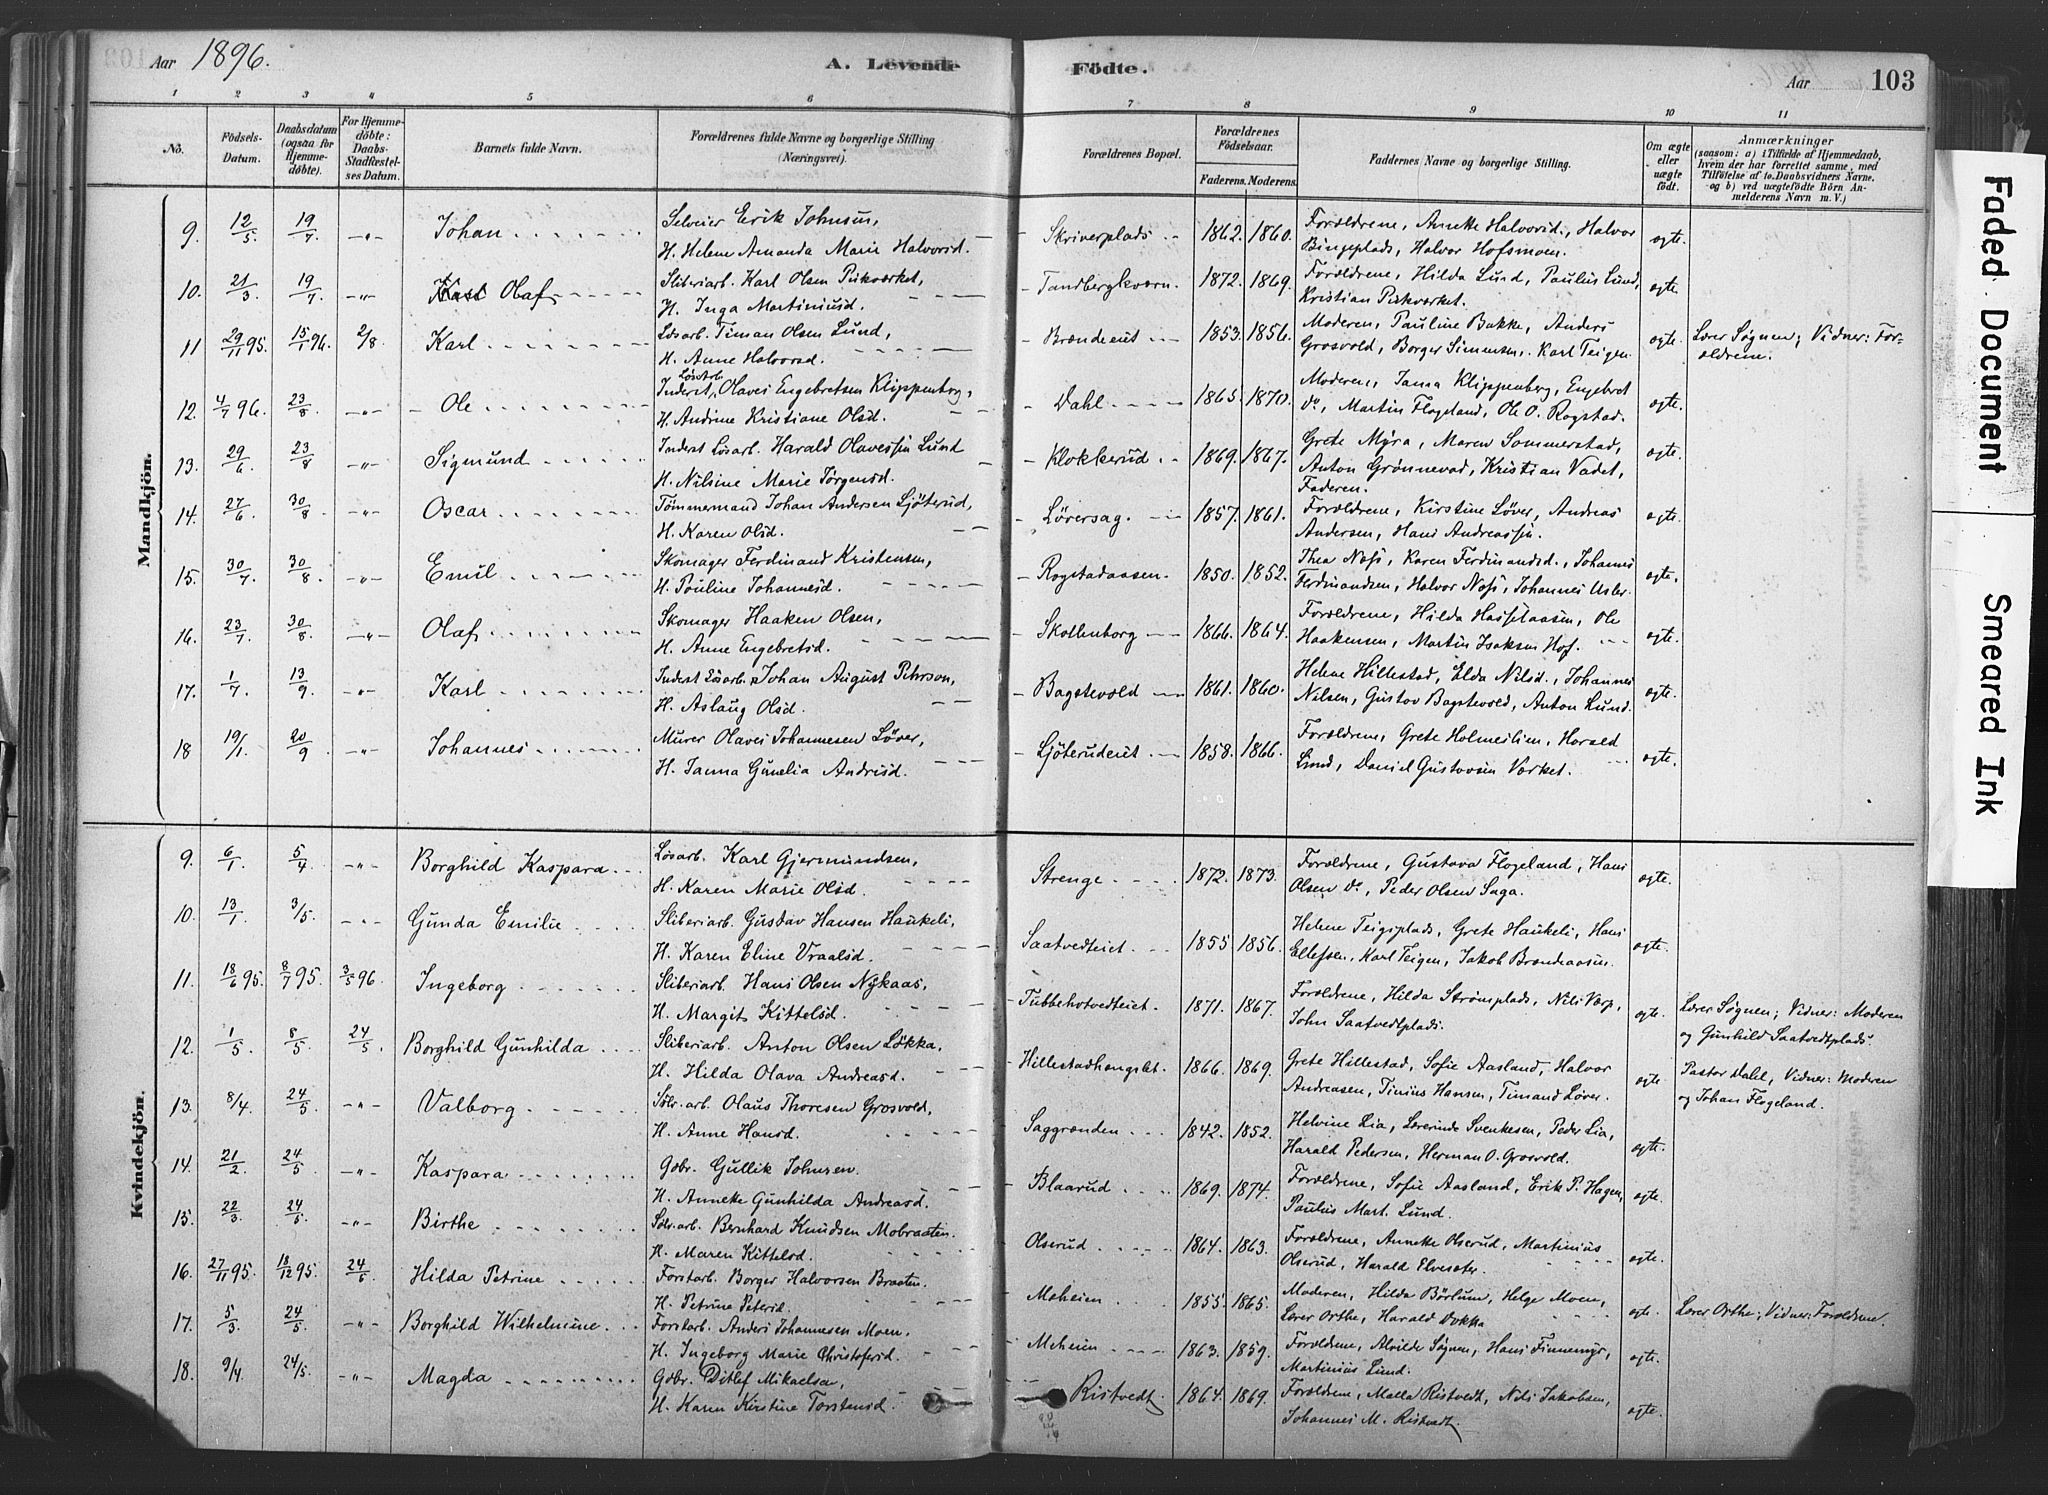 Aar 1896.
A. Levende Födte.
Aar 103
1 2 3 4 5 6 7 8 9 10 11
No.
Födsels-Datum.
Daabsdatum (ogsaa for Hjemme-döbte).
For Hjemme-döbte: Daabs-Stadfæstel-ses Datum.
Barnets fulde Navn.
Forældrenes fulde Navne og borgerlige Stilling (Næringsvei).
Forældrenes Bopæl.
Forældrenes Födselsaar.
Faderens. Moderens.
Faddernes Navne og borgerlige Stilling.
Om ægte eller uægte födt.
Anmærkninger
(saasom: a) i Tilfælde af Hjemmedaab, hvem der har forrettet samme, med Tilföielse af to Daabsvidners Navne, og b) ved uægtefödte Börn An-melderens Navn m. V.)
Mandkjön.
9. 12/5 19/7 -"- Johan Selveier Erik Johnsen, H. Helene Amanda Marie Halvorsd. Skriverplads 1862. 1860. Forældrene, Anneke Halvorsd., Halvor Bingeplads, Halvor Hofsmoen. ægte.
10. 21/3 19/7 -"- Karl Olaf Sliberiarb. Karl Olsen Pukværket, H. Inga Martiniusd. Tandbergkværn. 1872. 1869. Forældrene, Hilda Lund, Paulus Lund, Kristian Pukværket. ægte.
11 29/11 95. 15/1 96. 2/8 Karl Løsarb. Timan Olsen Lund, H. Anne Halvorsd. Brændeeiet 1853. 1856. Moderen, Pauline Bakke, Anders Grosvold, Borger Simensen, Karl Teigen ægte. Lærer Søgnen; Vidner: Forældrene.
12. 4/7 96. 23/8 -"- Ole Inderst, Løsarb. Olaves Engebretsen Klippenborg, H. Andrine Kristiane Olsd. Dahl 1865. 1870. Moderen, Janna Klippenberg, Engebret do, Martin Flogeland, Ole O. Rogstad. ægte.
13. 29/6 23/8 -"- Sigmund Inderst Løsarb. Harald Olavessøn Lund H. Nilsine Marie Jørgensd. Klokkerud 1869. 1867. Grete Myra, Maren Sommerstad, Anton Grønnevad, Kristian Vadet, Faderen. ægte.
14. 27/6 30/8 -"- Oscar Tømmermand Johan Andersen Ljøterud, H. Karen Olsd. Løversag. 1857. 1861. Forældrene, Kirstine Løver, Andreas Andersen, Hans Andreassøn. ægte.
15. 30/7 30/8 -"- Emil Skomager Ferdinand Kristensen, H. Pauline Johannesd. Rogstadaasen. 1850. 1852. Thea Næss, Karen Ferdinandsd., Johannes Ferdinandsen, Halvor Næss, Johannes ægte.
16. 23/7 30/8 -"- Olaf Skomager Haaken Olsen, H. Anne Engebretsd. Skollenborg 1866. 1864. Forældrene, Hilda Hasselaasen, Ole Haakensen, Martin Isaksen Hof. ægte.
17. 1/7 13/9 -"- Karl Inderst Løsarb. Johan August Pehrson, H. Aslaug Olsd. Bagstevold 1861. 1860. Helene Hillestad, Elda Nilsd., Johannes Nilsen, Gustav Bagstevold, Anton Lund. ægte.
18 19/1. 20/9 -"- Johannes Murer Olaves Johannesen Løver, H. Janna Gunelia Andersd. Ljøterudeiet 1858. 1866. Forældrene, Grete Holmeslien, Harald Lund, Daniel Gustavsen Værket. ægte.
Kvindekjön.
9. 6/1 5/4 -"- Borghild Kaspara Løsarb. Karl Gjermundsen, H. Karen Marie Olsd. Strenge 1872. 1873. Forældrene, Gustava Flogeland, Hans Olsen do, Peder Olsen Saga. ægte.
10. 13/1 3/5. -"- Gunda Emilie Sliberiarb. Gustav Hansen Haukeli, H. Karen Eline Vraalsd. Saatvedteiet 1855 1856. Helene Teigsplads, Grete Haukeli, Hans Ellefsen, Karl Teigen, Jakob Brændaasen. ægte
11. 18/6 95. 8/7 95. 3/5 96 Ingeborg Sliberiarb. Hans Olsen Nykaas, H. Margit Kittelsd. Tubbehotvedteiet. 1871. 1867. Forældrene, Hilda Strømplads, Nils Varp, John Saatvedtplads. ægte. Lærer Søgnen; Vidner: Moderen og Gunhild Saatvedtplads.
12. 1/5 8/5 24/5. Borghild Gunhilda Sliberiarb. Anton Olsen Løkka, H. Hilda Olava Andreasd. Hillestadhengslet. 1866. 1869. Grete Hillestad, Sofie Aasland, Halvor Andreasen, Tinius Hansen, Timand Løver. ægte Pastor Dahl, Vidner: Moderen og Johan Flogeland.
13. 8/4 24/5. -"- Valborg Sølv.arb. Olaus Thoresen Grosvold, H. Anne Hansd. Saggrænden 1842. 1852. Helvine Lia, Lovrinde Svenkesen, Peder Lia, Harald Pedersen, Herman O. Grosvold. ægte.
14. 21/2 24/5 -"- Kaspara Gbr. Gullik Johnsen. H. Anneke Gunhilda Andreasd. Blaarud 1869. 1874. Forældrene, Sofie Aasland, Erik P. Hagen, Paulus Mart. Lund. ægte
15. 22/3 24/5. -"- Birthe Sølv.arb. Bernhard Knudsen Mobraaten. H. Maren Kittelsd. Olserud 1864. 1863. Forældrene, Anneke Olserud, Martinius Olserud, Harald Elvesæter. ægte.
16. 27/11 95. 18/12 95. 24/5 Hilda Petrine Forstarb. Borger Halvorsen Braaten. H. Petrine Petersd. Meheien 1855. 1865. Moderen, Hilda Børsum, Helge Moen, Lærer Orthe, Harald Dokka ægte. Lærer Orthe; Vidner: Forældrene.
17. 5/3 24/5 -"- Borghild Wilhelmine Forstarb. Anders Johannesen Moen. H. Ingeborg Marie Christofersd. Meheien 1863. 1859. Forældrene, Alvilde Søgnen, Hans Finnemyr, Martinius Lund. ægte.
18. 9/4. 24/5. -"- Magda Gbr. Ditlef Mikaelsen, H. Karen Kirstine Torstensd. Ristvedt 1864. 1869. Forældrene, Malla Ristvedt, Nils Jakobsen, Johannes M. Ristvedt. ægte.
Faded Document
Smeared Ink